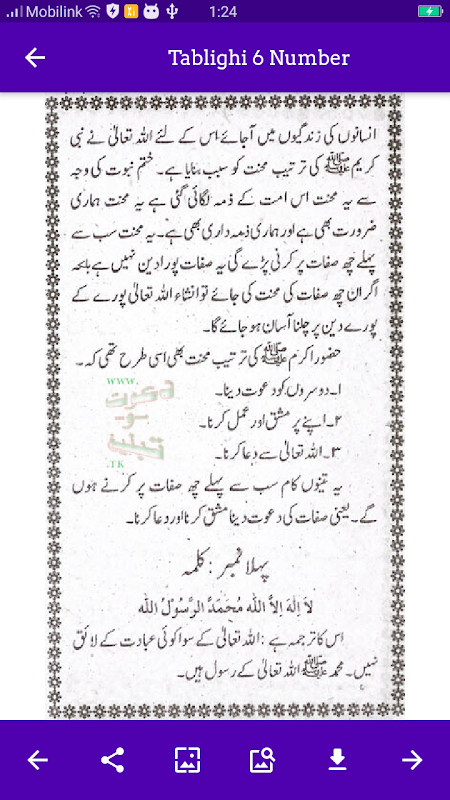 Mobilink 1:24
Tablighi 6 Number
انسانوں کی زندگیوں میں آجائے اس کے لئے اللہ تعالیٰ نے نبی
کریم ﷺ کی ترتیب محنت کو سبب بنایا ہے۔ ختم نبوت کی وجہ
سے یہ محنت اس امت کے ذمہ لگائی گئی ہے یہ محنت ہماری
ضرورت بھی ہے اور ہماری ذمہ داری بھی ہے۔ یہ محنت سب سے
پہلے چھ صفات پر کرنی پڑے گی یہ صفات پورا دین نہیں ہے بلکہ
اگر ان چھ صفات کی محنت کی جائے تو انشاء اللہ تعالیٰ پورے کے
پورے دین پر چلنا آسان ہو جائے گا۔
حضور اکرم ﷺ کی ترتیب محنت بھی اسی طرح تھی کہ۔
۱۔ دوسروں کو دعوت دینا۔
۲۔ اپنے پر مشق اور عمل کرنا۔
۳۔ اللہ تعالیٰ سے دعا کرنا۔
www.
دعوت
و
تبلیغ
.TK
یہ تینوں کام سب سے پہلے چھ صفات پر کرنے ہوں
گے۔ یعنی صفات کی دعوت دینا مشق کرنا اور دعا کرنا۔
پہلا نمبر : کلمہ
لاَ اِلٰهَ اِلاَّ اللّٰه مُحَمَّدُ الرَّسُوْلُ اللّٰه
اس کا ترجمہ ہے : اللہ تعالیٰ کے سوا کوئی عبادت کے لائق
نہیں۔ محمد ﷺ اللہ تعالیٰ کے رسول ہیں۔